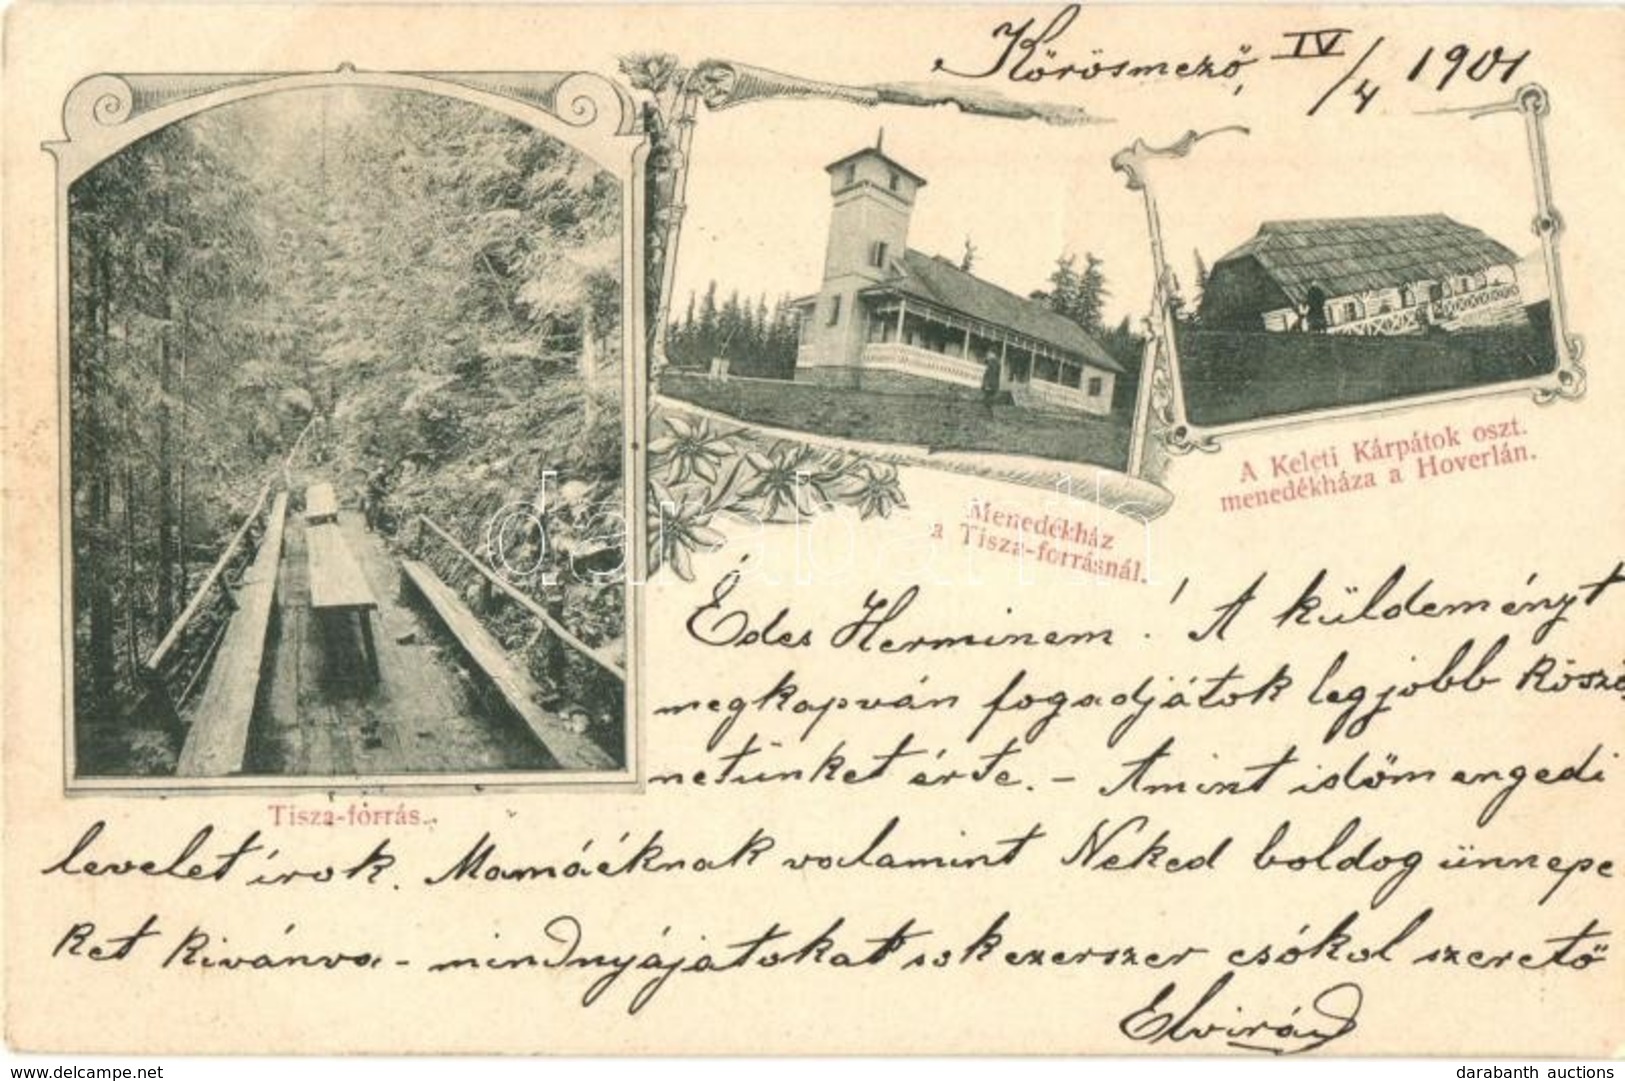 Kőrösmező, IV/4 1901
A Keleti Kárpátok oszt.
menedékháza a Hoverlán.
Menedékház
a Tisza-forrásnál.
Tisza-forrás.
darabanth
Édes Herminem! A küldeményt
megkapván fogadjátok legjobb köszö
netünket érte. – Amint időm engedi
levelet írok. Mamáéknak valamint Neked boldog ünnepe
ket kivánva – mindnyájatokat sokezerszer csókol szerető
Elvirád
delcampe.net
darabanth auctions